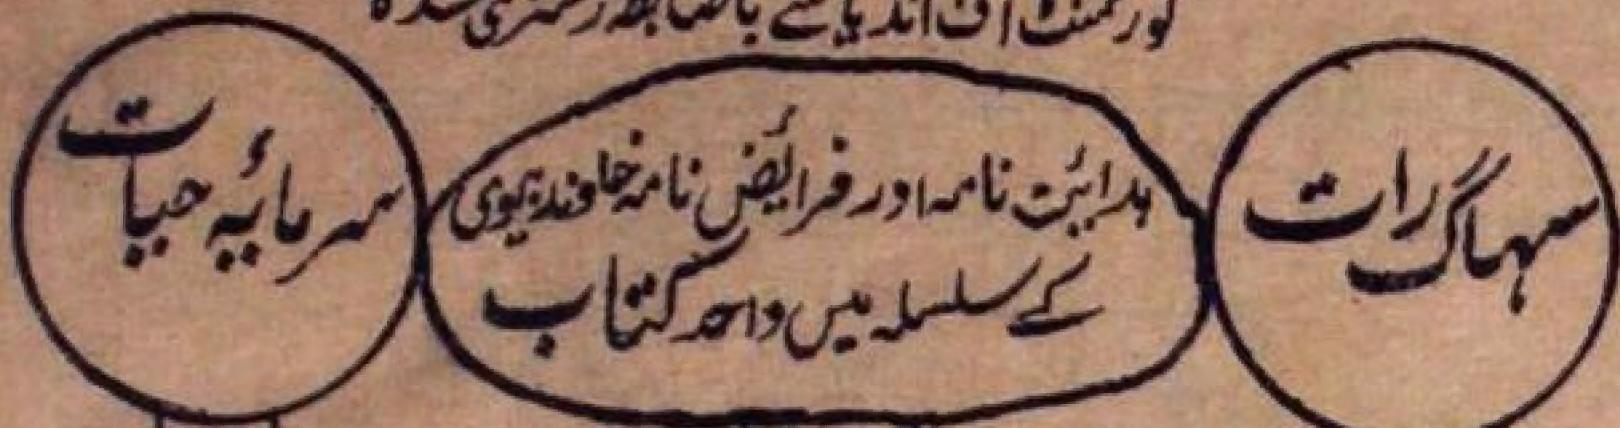 گورنمنٹ آف انڈیا سے باضابطہ رجسٹری شدہ
سہاگ رات
ہدائیت نامہ اور فرائیض نامہ خاوند بیوی
کے سلسلہ میں واحد کتاب
سرمائیہ حیات